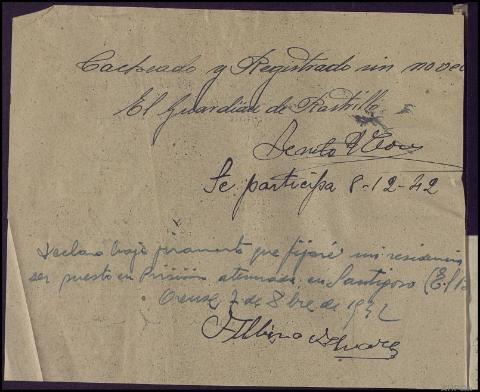 Cacheado y Registrado sin noved
El Guardian de Rastrillo
Benito
Se participa 8-12-42
Declaro bajo juramento que fijaré mi residencia
ser puesto en Prisión atenuada en Santigoso (El B
Orense 7 de 8bre de 1942
Albino Alvarez